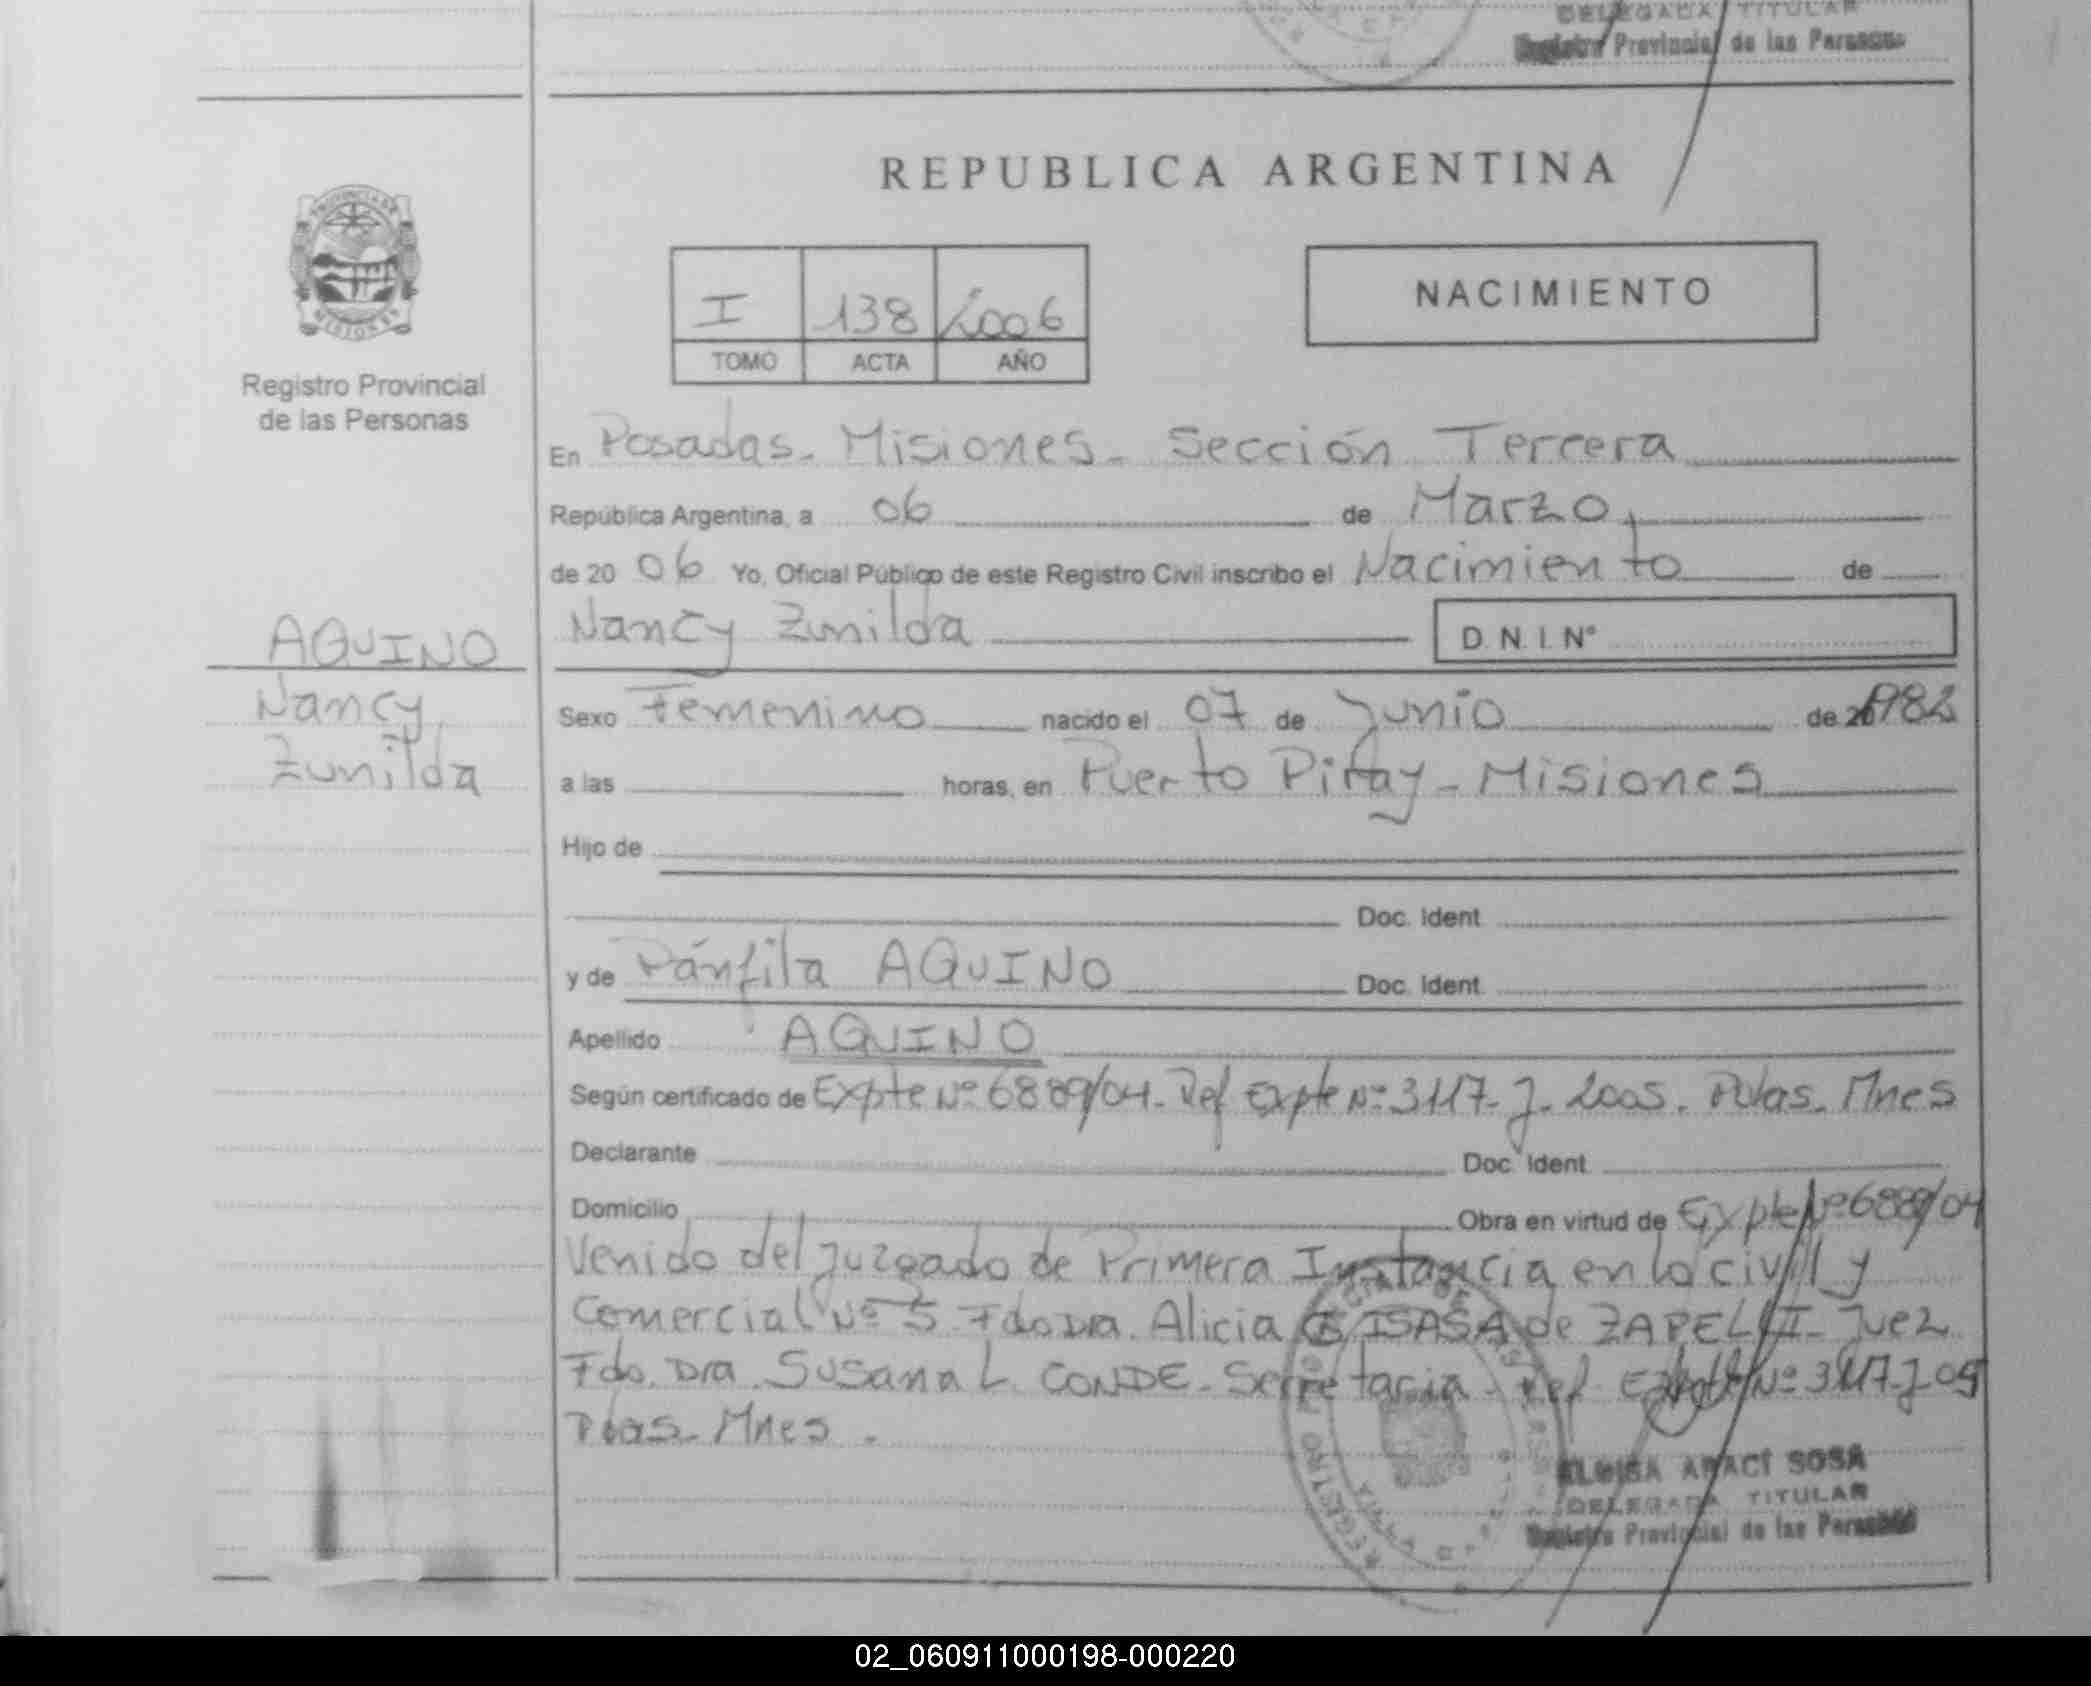 DELEGADA TITULAR
Registro Provincial de las Personas
REPUBLICA ARGENTINA
PROVINCIA DE
MISIONES
Registro Provincial
de las Personas
I 138 2006
TOMO ACTA AÑO
NACIMIENTO
En Posadas - Misiones - Sección Tercera
República Argentina, a 06 de Marzo
de 20 06 Yo, Oficial Público de este Registro Civil inscribo el Nacimiento de
AQUINO
Nancy Zunilda D. N. I. Nº
Nancy
Zunilda
Sexo Femenino nacido el 07 de Junio de 1982
a las horas, en Puerto Piray - Misiones
Hijo de
Doc. Ident.
y de Pánfila AQUINO Doc. Ident.
Apellido AQUINO
Según certificado de Expte Nº 6889/04 - Ref Expte Nº 3117 - J - 2005. Pdas. Mnes
Declarante Doc. Ident.
Domicilio Obra en virtud de Expte Nº 6889/04
Venido del Juzgado de Primera Instancia en lo civil y
Comercial Nº 5 Fdo Dra. Alicia ISASA de ZAPELLI - Juez
Fdo. Dra. Susana L. CONDE - Secretaria - Ref. Expte Nº 3117-J-05
Pdas - Mnes.
ELOISA ARACI SOSA
DELEGADA TITULAR
Registro Provincial de las Personas
02_060911000198-000220